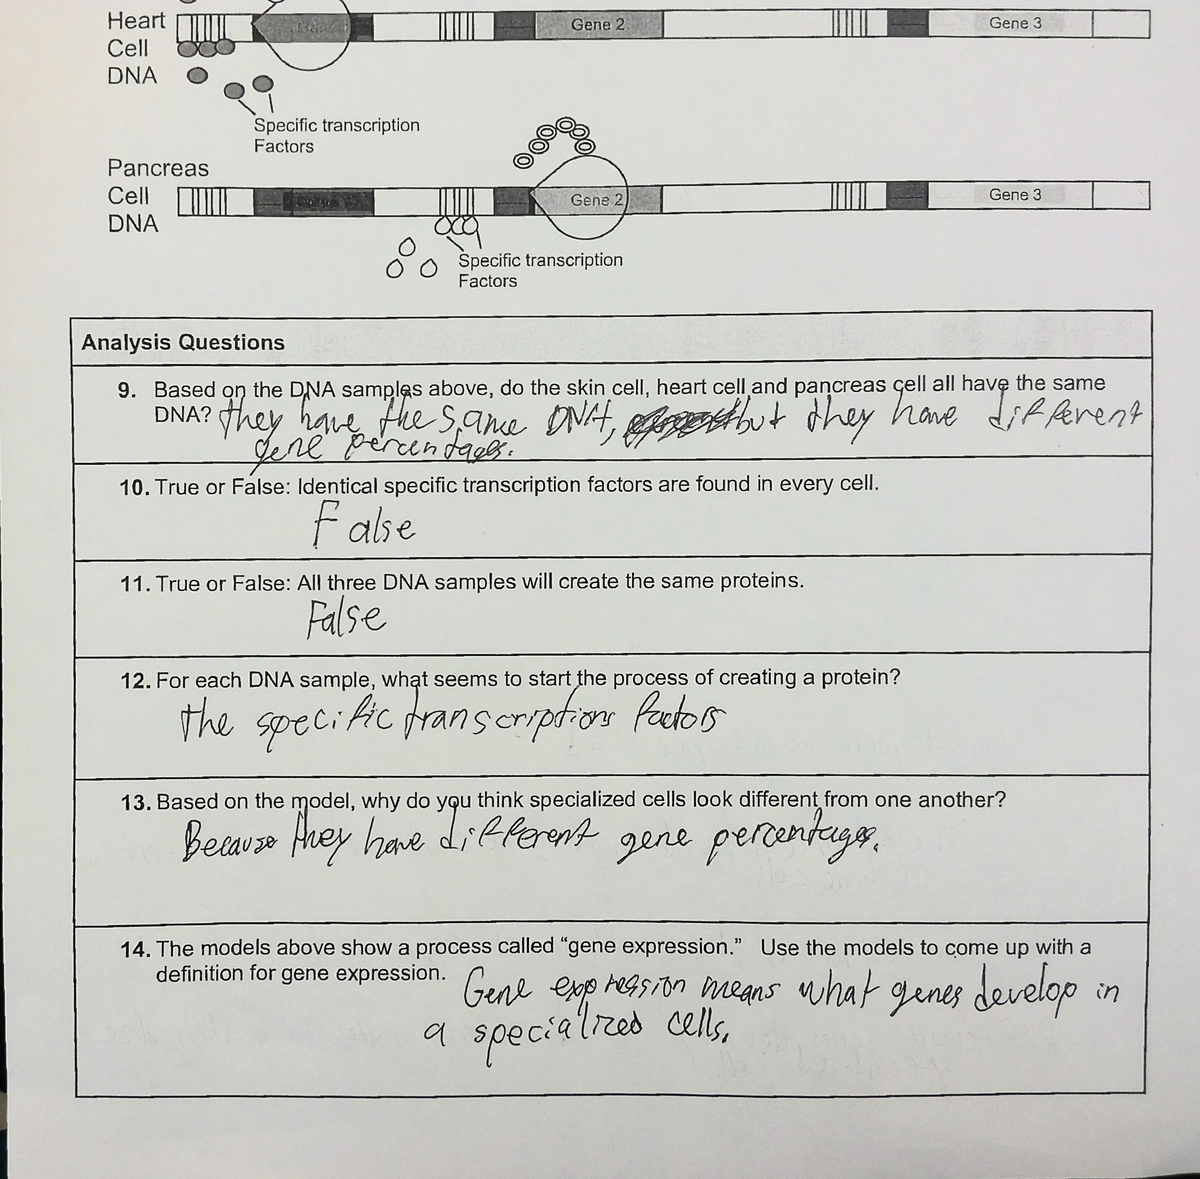 Heart
Cell
DNA
Gene 2
Gene 3
Specific transcription
Factors
Pancreas
Cell
DNA
Gene 2
Gene 3
Specific transcription
Factors
Analysis Questions
9. Based on the DNA samples above, do the skin cell, heart cell and pancreas cell all have the same
DNA? they have the same DNA, but they have different
gene percentages.
10. True or False: Identical specific transcription factors are found in every cell.
False
11. True or False: All three DNA samples will create the same proteins.
False
12. For each DNA sample, what seems to start the process of creating a protein?
the specific transcriptions factors
13. Based on the model, why do you think specialized cells look different from one another?
Because they have different gene percentages.
14. The models above show a process called “gene expression.” Use the models to come up with a
definition for gene expression. Gene expression means what genes develop in
a specialized cells.